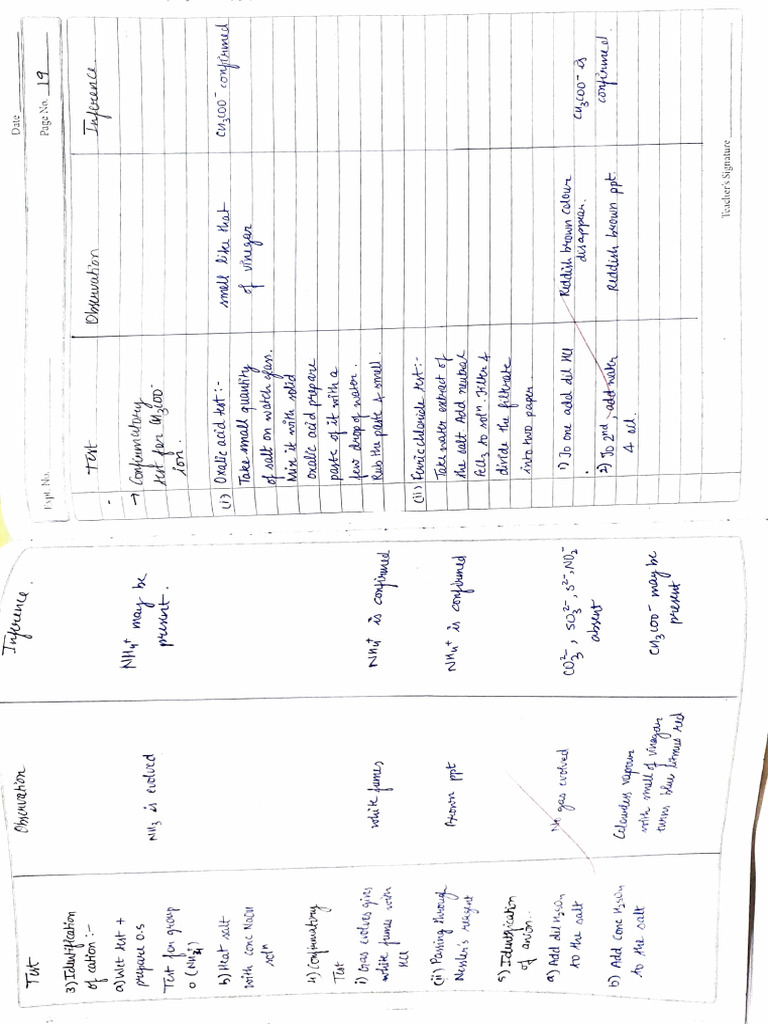 Test
Observation
Inference.
3) Identification
of cation :-
a) Wet test +
prepare O.S
Test for group
0 (NH4+)
NH3 is evolved
NH4+ may be
present.
b) Heat salt
with conc NaOH
soln
4) Confirmatory
Test
i) Gas evolves gives
white fumes with
HCl
white fumes
NH4+ is confirmed
(ii) Passing through
Nessler's reagent
Brown ppt
NH4+ is confirmed
5) Identification
of anion..
a) Add dil H2SO4
to the salt
No gas evolved
CO3 2-, SO3 2-, S2-, NO2-
absent
b) Add Conc H2SO4
to the salt
Colourless vapour
with smell of vinegar
turns blue litmus red
CH3COO- may be
present
Expt. No.
Date
Page No. 19
Test
Observation
Inference
→ Confirmatory
test for CH3COO-
ion.
(i) Oxalic acid test :-
Take small quantity
of salt on watch glass.
Mix it with solid
oxalic acid prepare
paste of it with a
few drop of water.
Rub the paste & smell.
smell like that
of vinegar
CH3COO- confirmed
(ii) Ferric chloride test :-
Take water extract of
the salt. Add neutral
FeCl3 to soln. Filter &
divide the filtrate
into two paper
1) To one add dil HCl
Reddish brown colour
disappear.
CH3COO- is
confirmed.
2) To 2nd, add water
Reddish brown ppt.
Teacher's Signature